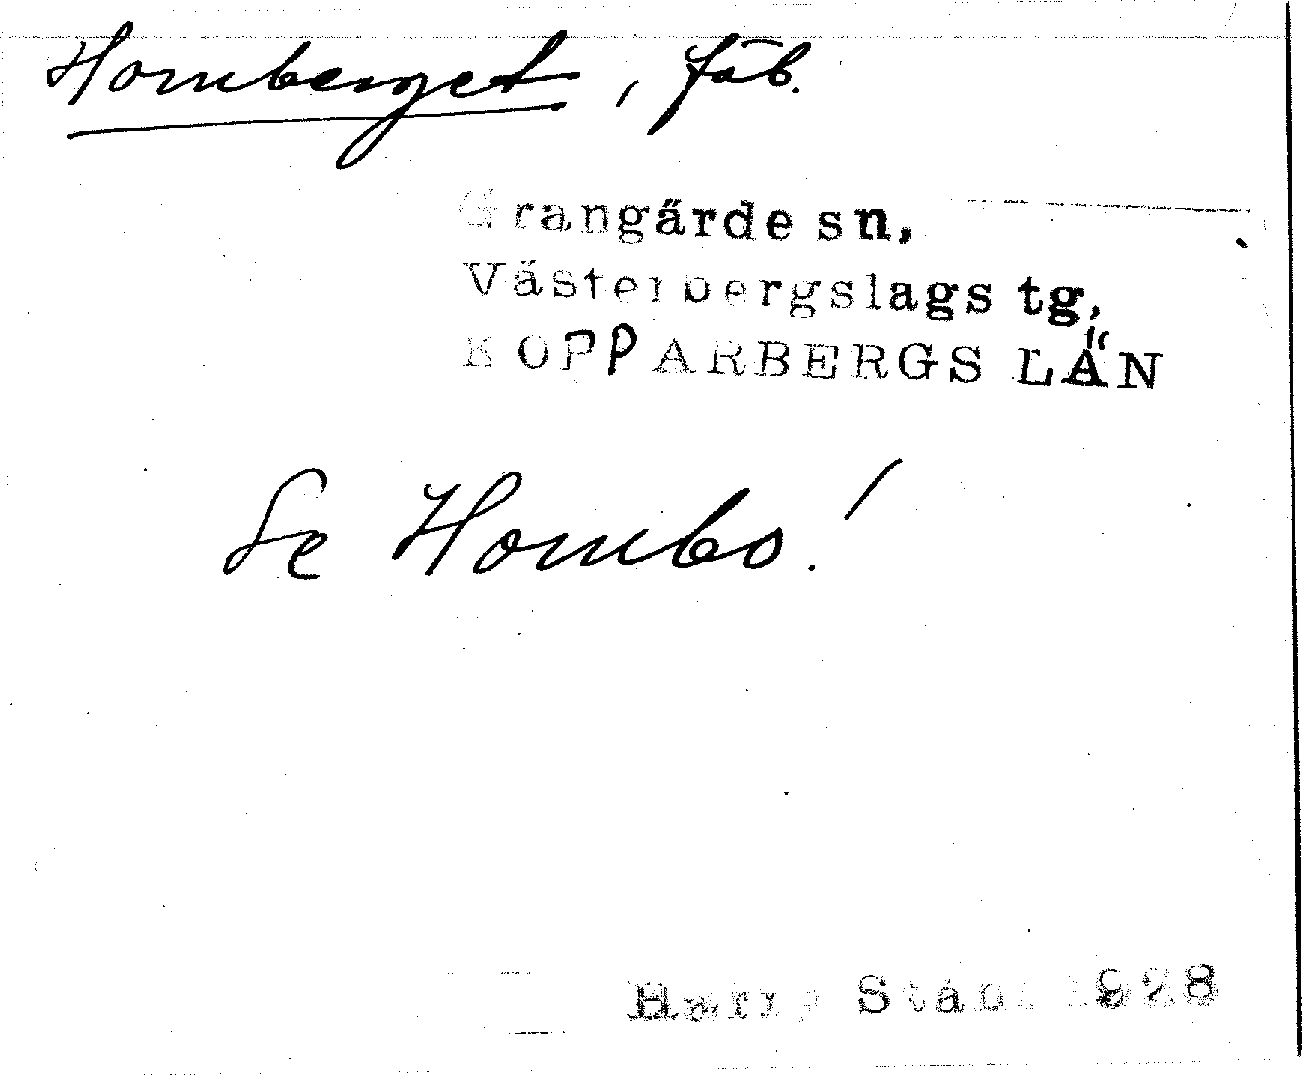 Homberget, fäb.
Grangärde sn,
Västerbergslags tg,
KOPPARBERGS LÄN
Se Hombo!
Harry Ståhl 1928